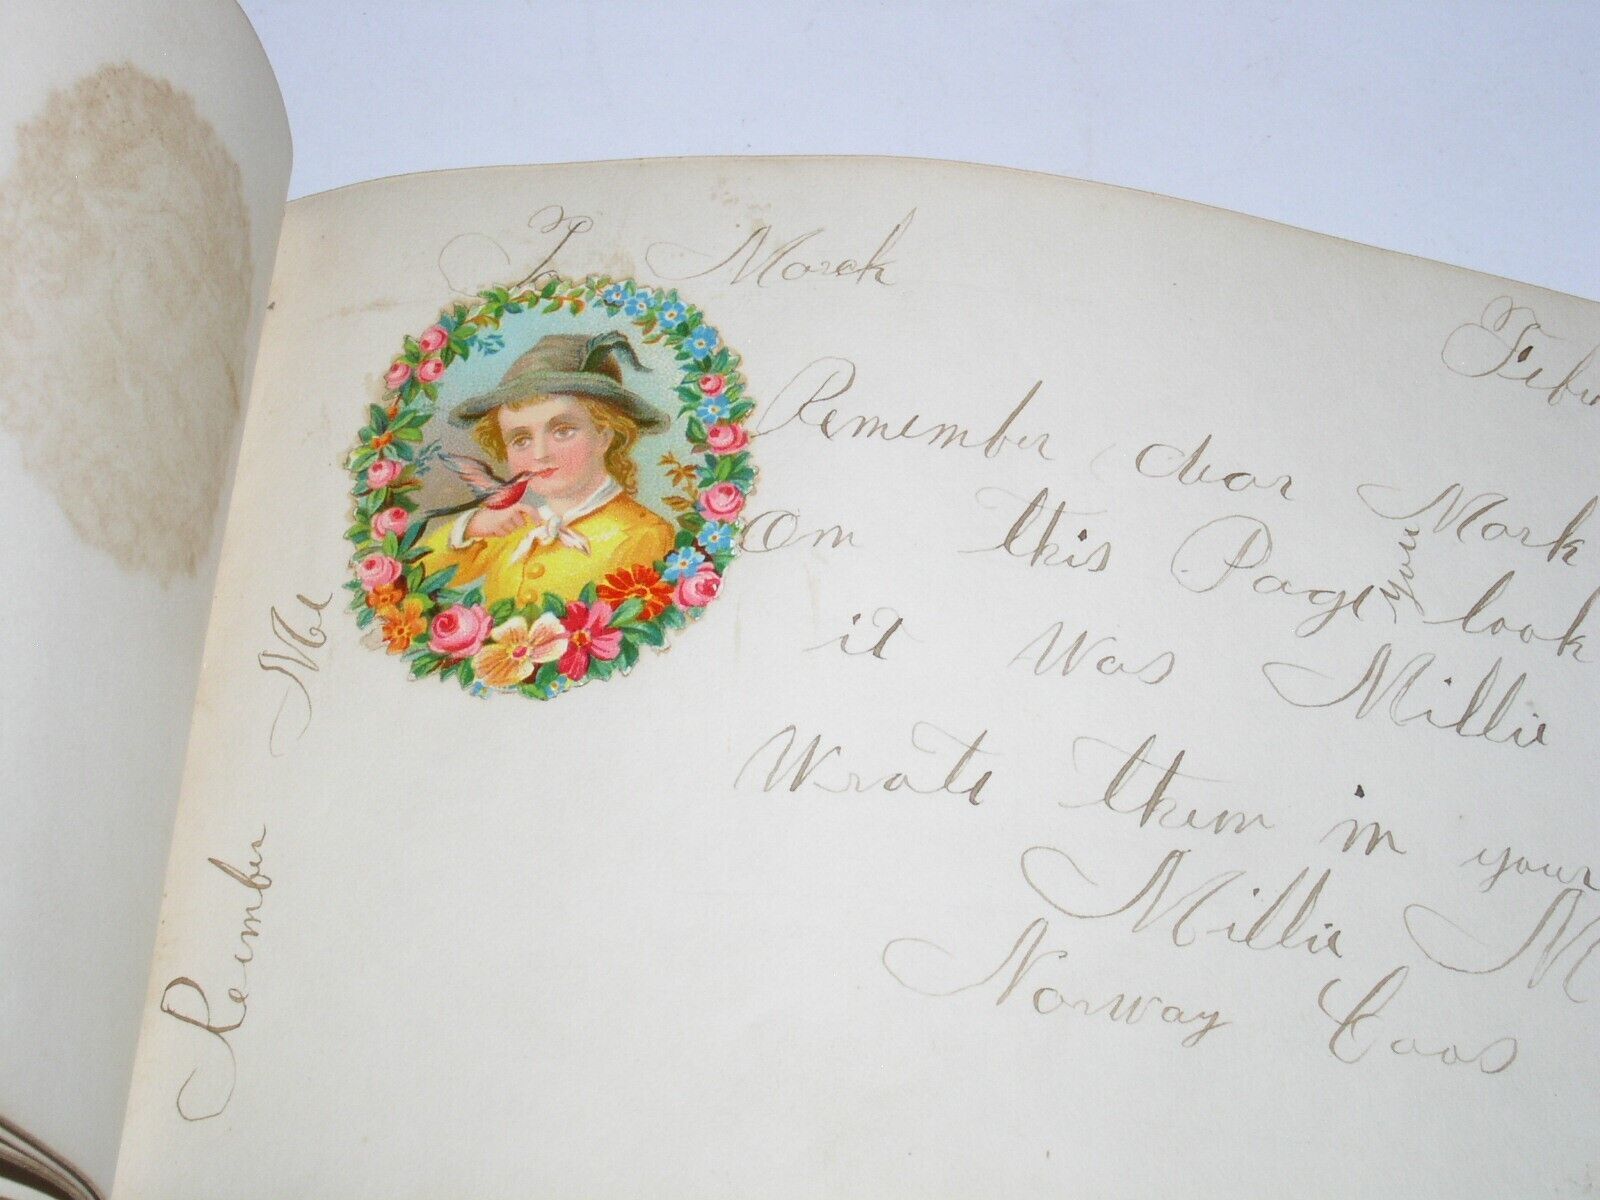 To Mark
Febu
Remember dear Mark
On this Page you look
it was Millie
Wrote them in your
Millie M
Norway Coos
Remember Me